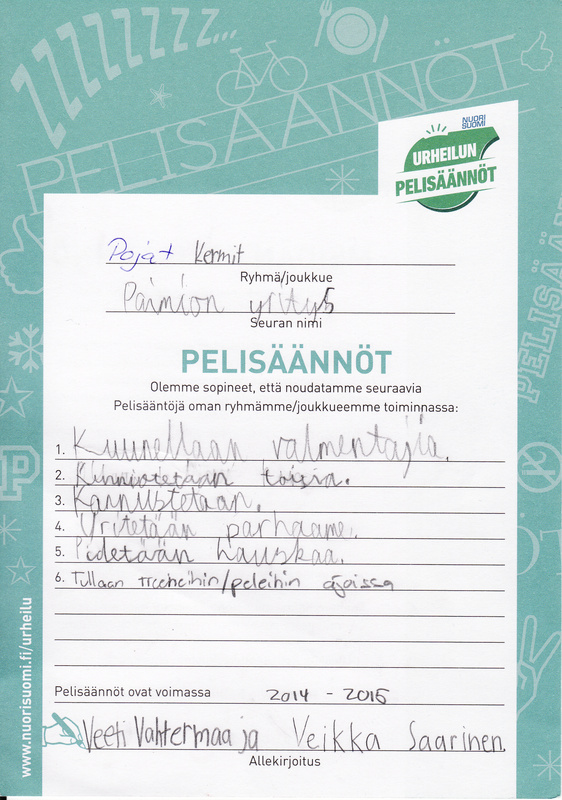 ZZZZZZZZ...
PELISÄÄNNÖT
NUORI
SUOMI
URHEILUN
PELISÄÄNNÖT
Pojat Kermit
Ryhmä/joukkue
Paimion yritys
Seuran nimi
PELISÄÄNNÖT
Olemme sopineet, että noudatamme seuraavia
Pelisääntöjä oman ryhmämme/joukkueemme toiminnassa:
1. Kuunellaan valmentajia.
2. Kunniotetaan toisia.
3. Kannustetaan.
4. Yritetään parhaame.
5. Pidetään hauskaa.
6. Tullaan treeneihin/peleihin ajoissa
Pelisäännöt ovat voimassa 2014 - 2015
Veeti Valtermaa ja Veikka Saarinen.
Allekirjoitus
www.nuorisuomi.fi/urheilu